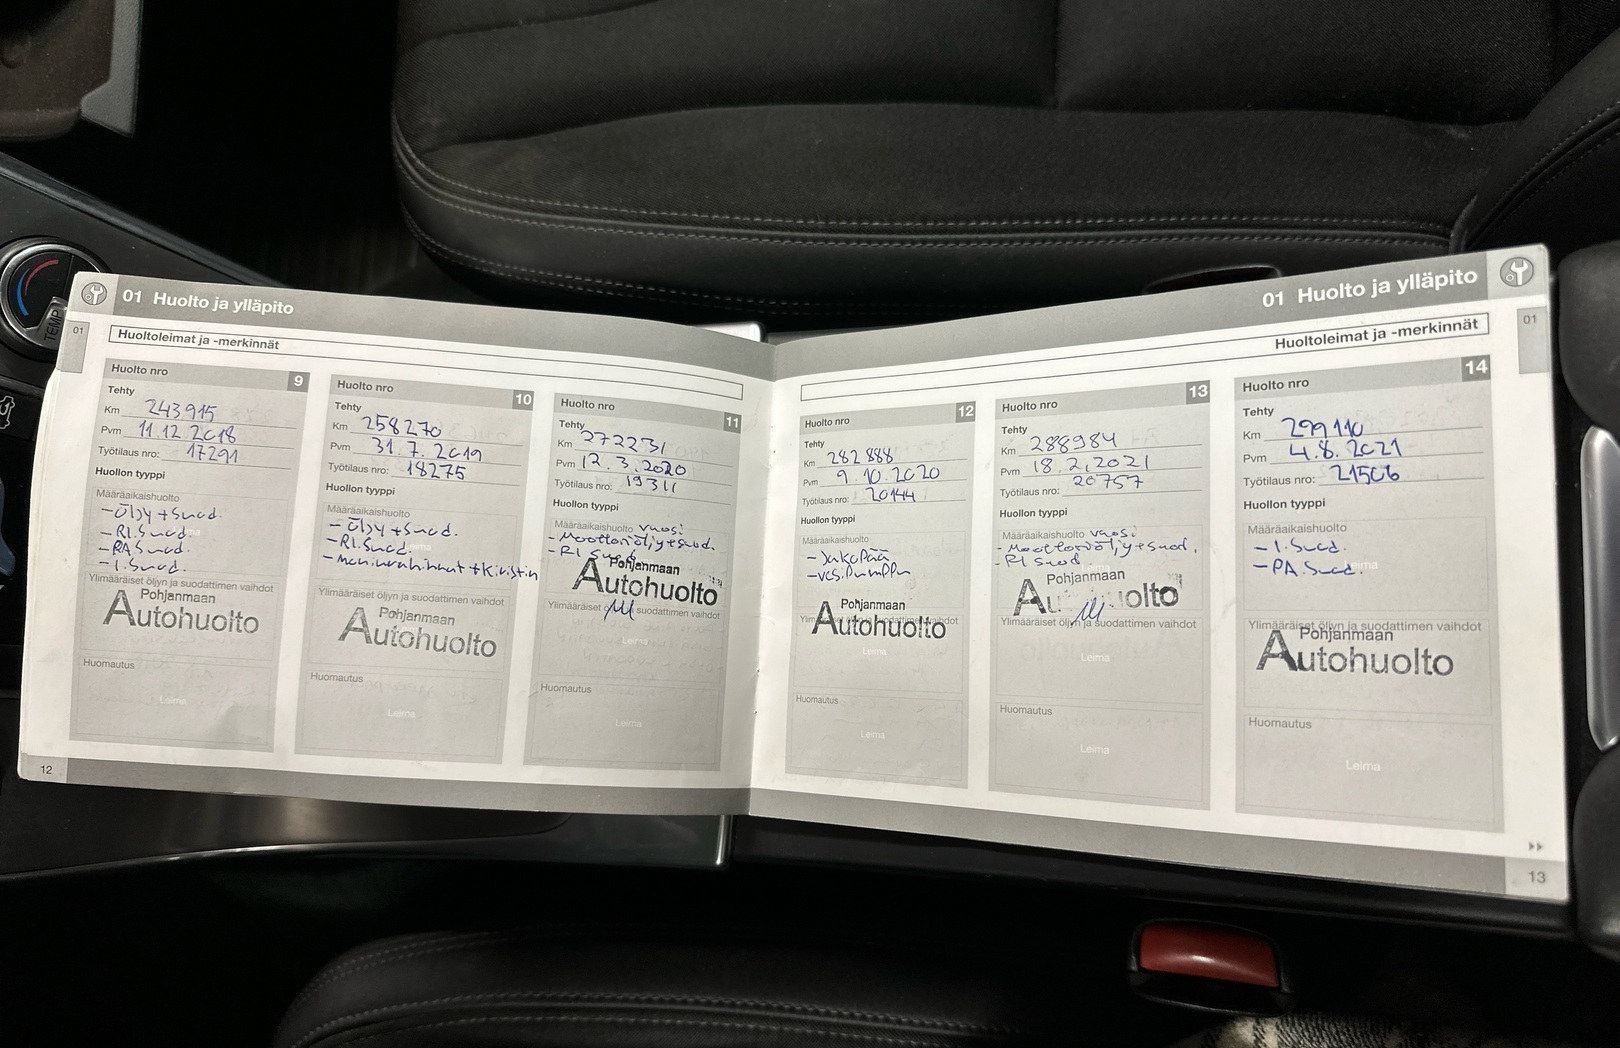 TEMP
01 Huolto ja ylläpito
01
Huoltoleimat ja -merkinnät
Huolto nro 9
Tehty
Km 243915
Pvm 11.12 2018
Työtilaus nro: 17291
Huollon tyyppi
Määräaikaishuolto
- Öljy + Suod.
- RI.Suod.
- RA Suod.
- I.Suod.
Ylimääräiset öljyn ja suodattimen vaihdot
Pohjanmaan
Autohuolto
Huomautus
Leima
12
Huolto nro 10
Tehty
Km 258270
Pvm 31.7.2019
Työtilaus nro: 18275
Huollon tyyppi
Määräaikaishuolto
- Öljy + Suod.
- RI.Suod.
- moniurahihnat + Kiristin
Ylimääräiset öljyn ja suodattimen vaihdot
Pohjanmaan
Autohuolto
Huomautus
Leima
Huolto nro 11
Tehty
Km 272231
Pvm 12.3.2020
Työtilaus nro: 19311
Huollon tyyppi
Määräaikaishuolto vuosi
- Moottoriöljy + suod.
- RI Suod
Pohjanmaan
Autohuolto
Ylimääräiset suodattimen vaihdot
Leima
Huomautus
Leima
01 Huolto ja ylläpito
01
Huoltoleimat ja -merkinnät
Huolto nro 12
Tehty
Km 282888
Pvm 9.10.2020
Työtilaus nro: 20144
Huollon tyyppi
Määräaikaishuolto
- Jakopää
- ves.Pumppu
Pohjanmaan
Autohuolto
Leima
Huomautus
Leima
Huolto nro 13
Tehty
Km 288984
Pvm 18.2.2021
Työtilaus nro: 20757
Huollon tyyppi
Määräaikaishuolto vuosi
- Moottoriöljy + suod.
- RI Suod
Pohjanmaan
Autohuolto
Ylimääräiset öljyn ja suodattimen vaihdot
Leima
Huomautus
Leima
Huolto nro 14
Tehty
Km 299110
Pvm 4.8.2021
Työtilaus nro: 21506
Huollon tyyppi
Määräaikaishuolto
- I.Suod.
- PA.Suod.
Ylimääräiset öljyn ja suodattimen vaihdot
Pohjanmaan
Autohuolto
Huomautus
Leima
13